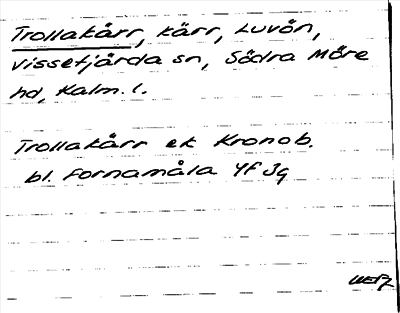 Trollakärr, kärr, Luvön,
Vissefjärda sn, Södra Möre
hd, Kalm. l.
Trollakärr ek Kronob.
bl. Fornamåla 4f Jg